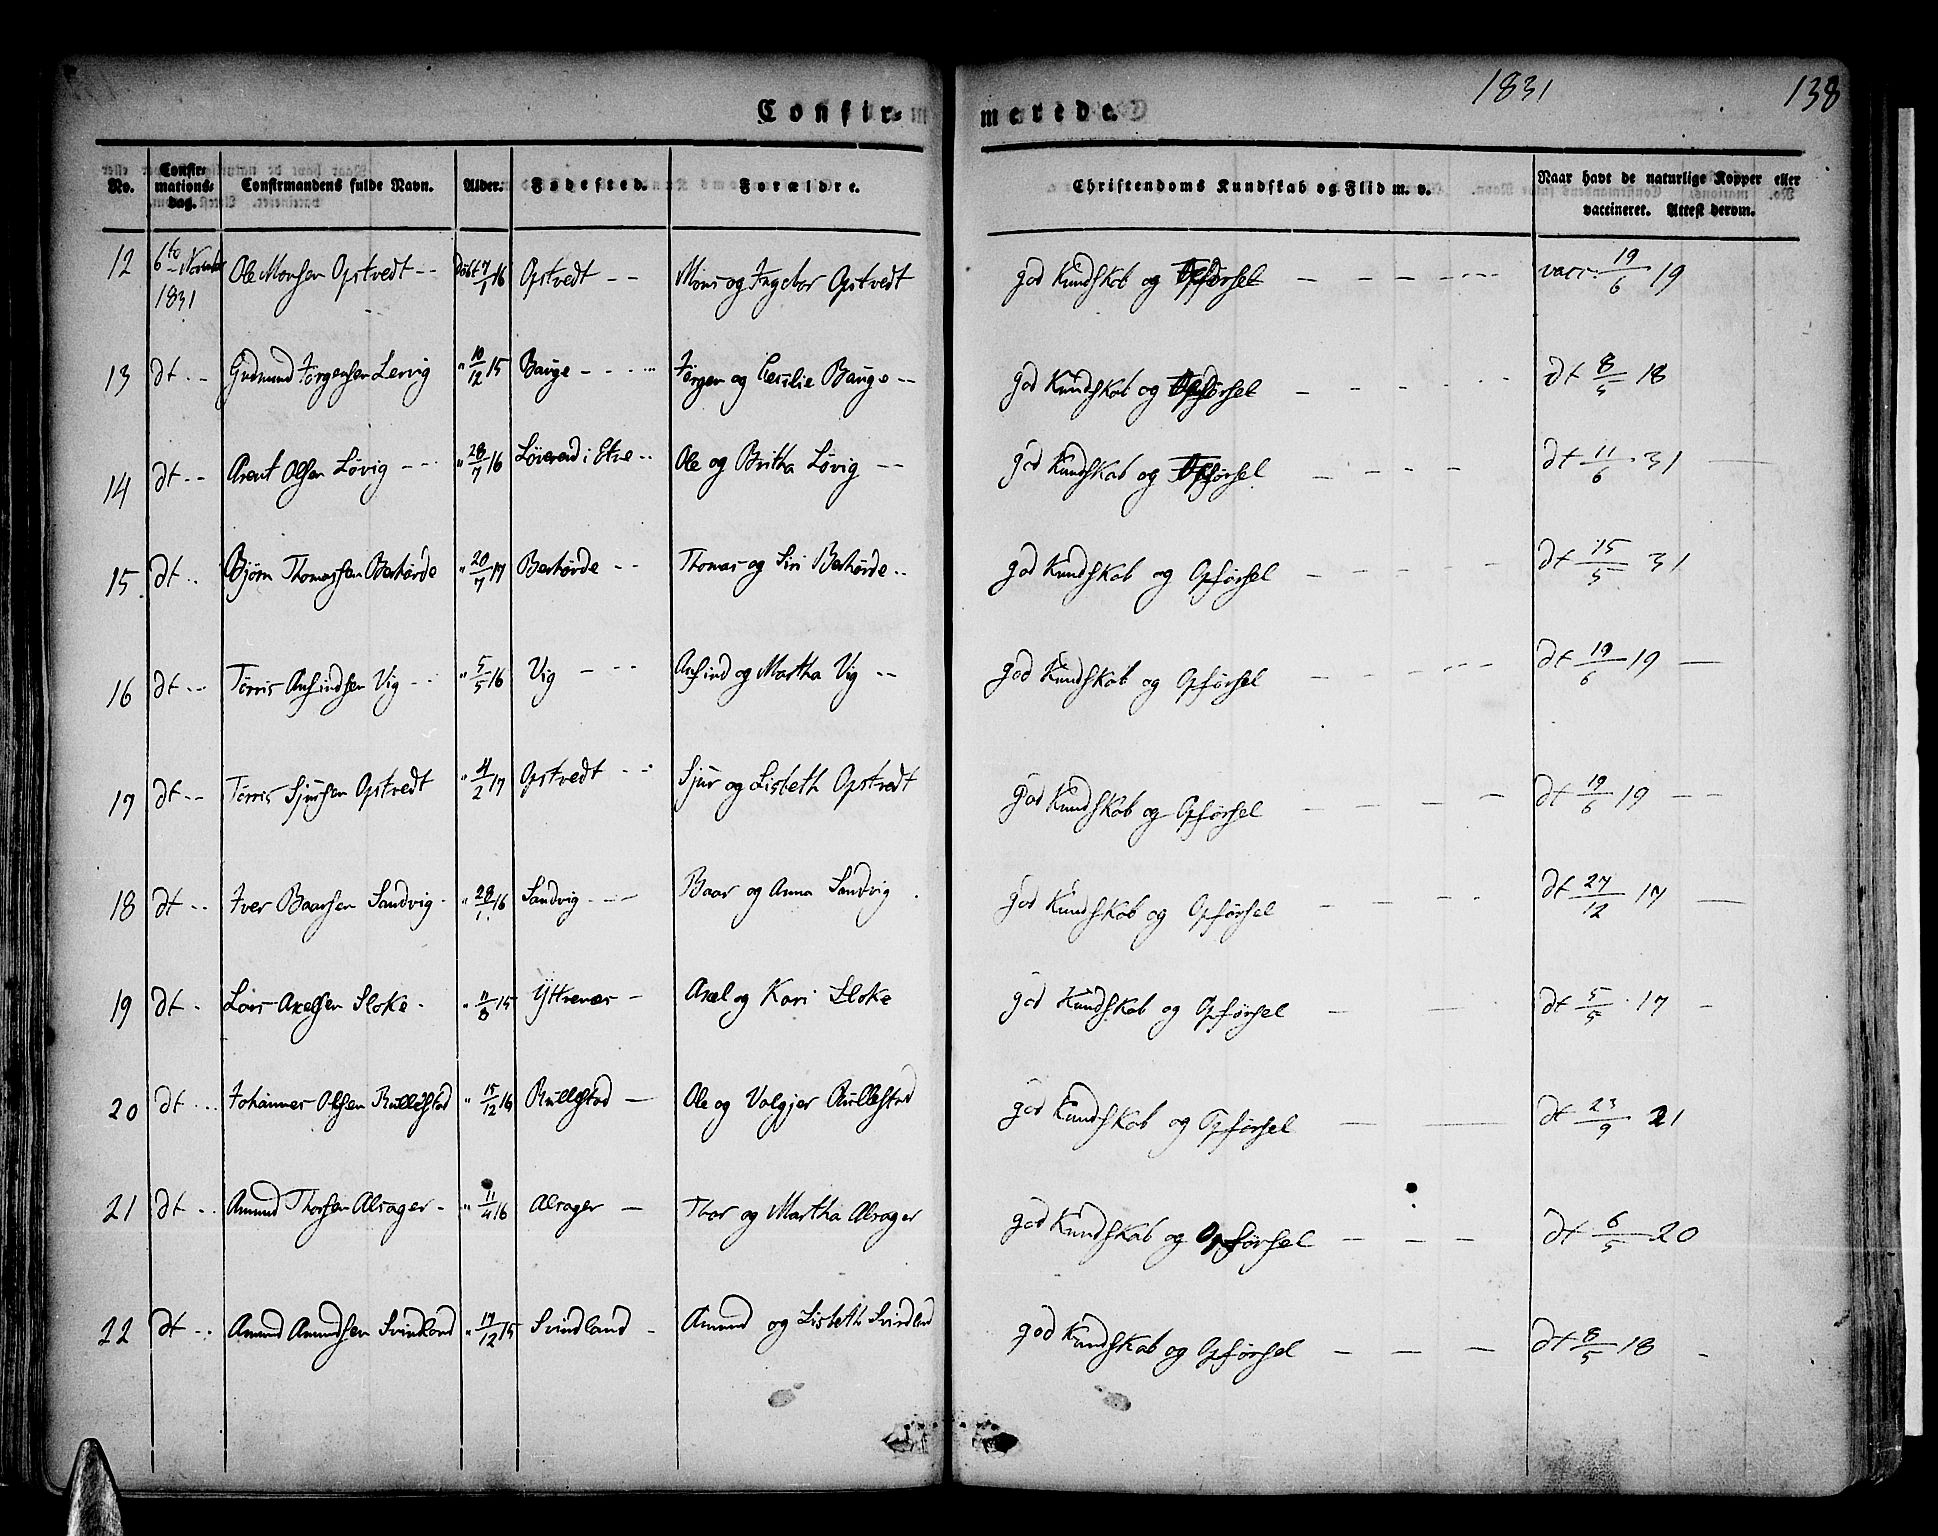 1831
138
Confir-
merede.
No.
Confir-
mations-
dag.
Confirmandens fulde Navn.
Alder.
Fødested.
Forældre.
Christendoms Kundskab og Flid m. v.
Naar havt de naturlige Kopper eller
vaccineret. Attest derom.
12 6te November 1831 Ole Monsen Opstvedt -- Døbt 7/1 16 Opstvedt -- Mons og Ingebor Opstvedt god Kundskab og Opførsel vacc. 19/6 19
13 dt -- Gudmund Jørgensen Lervig " 10/12 15 Bauge Jørgen og Cecilie Bauge -- god Kundskab og Opførsel dt 8/5 18
14 dt -- Arent Olsen Løvig " 28/7 16 i Etne Ole og Britha Løvig -- god Kundskab og Opførsel dt 11/6 31
15 dt Bjørn Thomassen Børhørde " 20/7 17 Børhørde -- Thomas og Siri Børhørde god Kundskab og Opførsel dt 15/5 31
16 dt Tørris Anfindsen Vig " 5/5 16 Vig Anfind og Martha Vig -- god Kundskab og Opførsel dt 19/6 19
17 dt -- Tørris Sjursen Opstvedt " 4/2 17 Opstvedt Sjur og Lisbeth Opstvedt god Kundskab og Opførsel dt 19/6 19
18 dt Iver Baarsen Sandvig " 28/1 16 Sandvig Baar og Anna Sandvig god Kundskab og Opførsel dt 27/12 17
19 dt Lars Axelsen Sloke " 11/8 15 Yttrenæs Axel og Kari Sloke god Kundskab og Opførsel dt 5/5 17
20 dt Johannes Olsen Rullestad " 15/12 16 Rullestad Ole og Valgjer Rullestad god Kundskab og Opførsel dt 23/9 21
21 dt Amund Thorsen Alsager " 11/4 16 Alsager Thor og Martha Alsager god Kundskab og Opførsel dt 6/5 20
22 dt Amund Amundsen Svindland " 17/12 15 Svindland Amund og Lisbeth Svindland god Kundskab og Opførsel dt 8/5 18